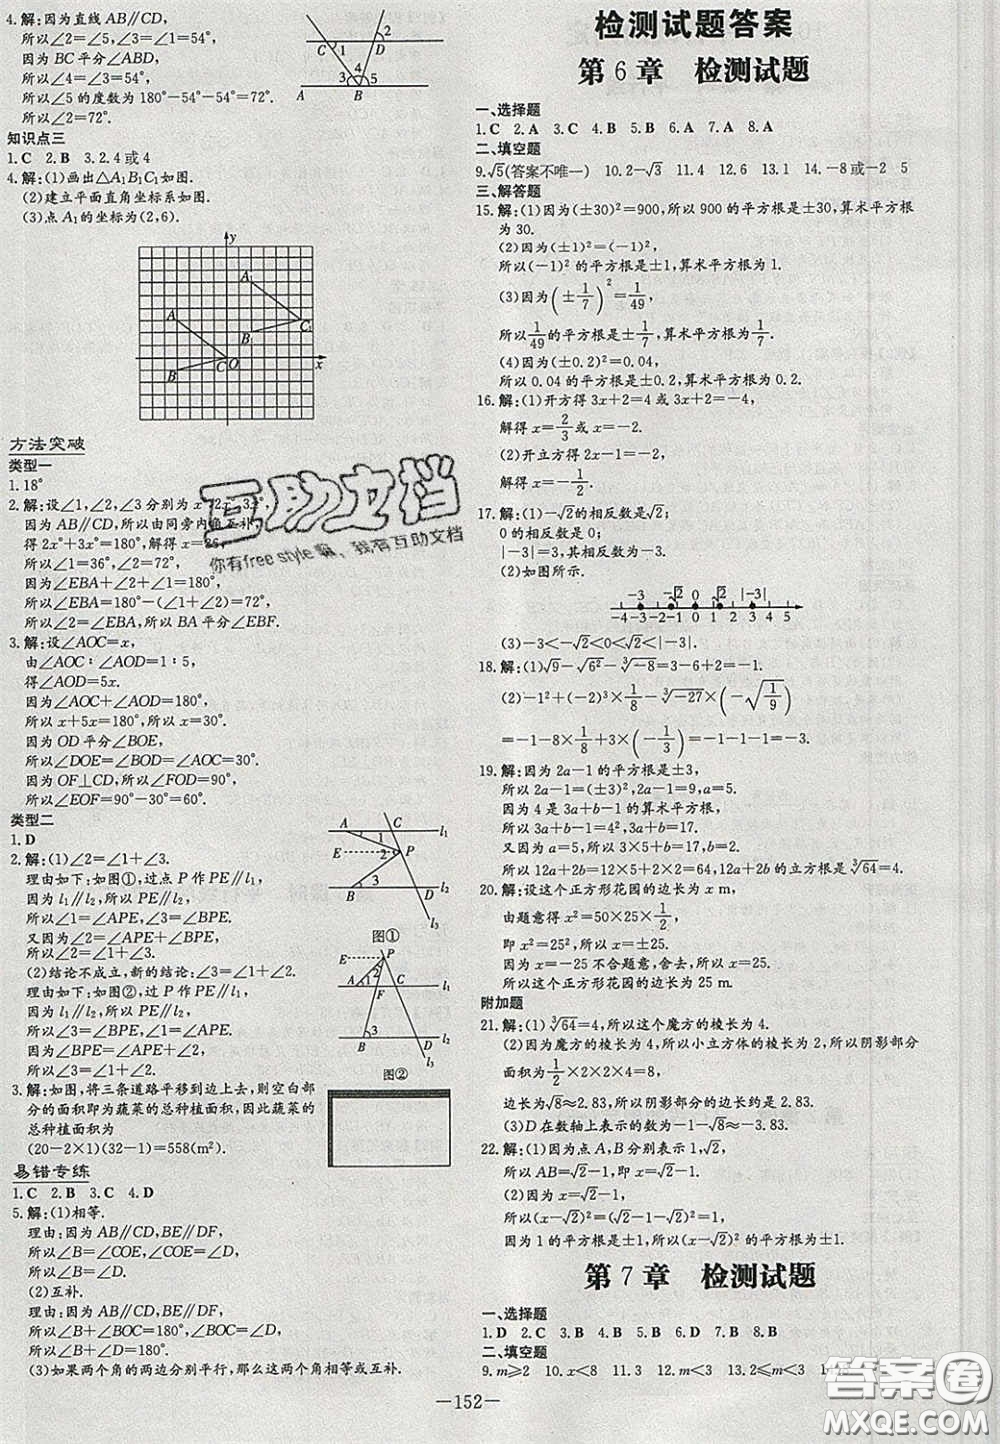 4.解:因为直线AB∥CD,
所以∠2=∠5,∠3=∠1=54°,
因为BC平分∠ABD,
所以∠4=∠3=54°,
所以∠5的度数为180°-54°-54°=72°.
所以∠2=72°.
知识点三
1.C 2.B 3.2.4或4
4.解:(1)画出△A₁B₁C₁如图.
(2)建立平面直角坐标系如图.
(3)点A₁的坐标为(2,6).
方法突破
类型一
1.18°
2.解:设∠1,∠2,∠3分别为x°,2x°,3x°.
因为AB∥CD,所以由同旁内角互补,
得2x°+3x°=180°,解得x=36,
所以∠1=36°,∠2=72°.
因为∠EBA+∠2+∠1=180°,
所以∠EBA=180°-(∠1+∠2)=72°,
所以∠2=∠EBA,所以BA平分∠EBF.
3.解:设∠AOC=x,
由∠AOC∶∠AOD=1∶5,
得∠AOD=5x.
因为∠AOC+∠AOD=180°,
所以x+5x=180°,所以x=30°.
因为OD平分∠BOE,
所以∠DOE=∠BOD=∠AOC=30°.
因为OF⊥CD,所以∠FOD=90°,
所以∠EOF=90°-30°=60°.
类型二
1.D
2.解:(1)∠2=∠1+∠3.
理由如下:如图①,过点P作PE∥l₁,
因为l₁∥l₂,所以PE∥l₂,
所以∠1=∠APE,∠3=∠BPE.
又因为∠2=∠APE+∠BPE,
所以∠2=∠1+∠3.
(2)结论不成立,新的结论:∠3=∠1+∠2.
理由如下:如图②,过P作PE∥l₁,
因为l₁∥l₂,所以PE∥l₂,
所以∠3=∠BPE,∠1=∠APE.
因为∠BPE=∠APE+∠2,
所以∠3=∠1+∠2.
图①
图②
3.解:如图,将三条道路平移到边上去,则空白部
分的面积即为蔬菜的总种植面积,因此蔬菜的
总种植面积为
(20-2×1)(32-1)=558(m²).
易错专练
1.C 2.B 3.C 4.D
5.解:(1)相等.
理由:因为AB∥CD,BE∥DF,
所以∠B=∠COE,∠COE=∠D,
所以∠B=∠D.
(2)互补.
理由:因为AB∥CD,BE∥DF,
所以∠B+∠BOC=180°,∠BOC=∠D,
所以∠B+∠D=180°.
(3)如果两个角的两边分别平行,那么这两个角相等或互补.
检测试题答案
第6章 检测试题
一、选择题
1.C 2.A 3.C 4.B 5.B 6.A 7.A 8.A
二、填空题
9.√5(答案不唯一) 10.2-√3 11.4 12.6 13.1 14.-8或-2 5
三、解答题
15.解:(1)因为(±30)²=900,所以900的平方根是±30,算术平方根
为30.
(2)因为(±1)²=(-1)²,
所以(-1)²的平方根是±1,算术平方根为1.
(3)因为(±1/7)²=1/49,
所以1/49的平方根是±1/7,算术平方根为1/7.
(4)因为(±0.2)²=0.04,
所以0.04的平方根是±0.2,算术平方根为0.2.
16.解:(1)开方得3x+2=4或3x+2=-4,
解得x=2/3或x=-2.
(2)开立方得2x-1=-2,
解得x=-1/2.
17.解:(1)-√2的相反数是√2;
0的相反数是0;
|-3|=3,其相反数为-3.
(2)如图所示.
-3 -√2 0 √2 |-3|
-4 -3 -2 -1 0 1 2 3 4
(3)-3<-√2<0<√2<|-3|.
18.解:(1)√9-√6²-∛-8=3-6+2=-1.
(2)-1²+(-2)³×1/8-∛-27×(-√1/9)
=-1-8×1/8+3×(-1/3)=-1-1-1=-3.
19.解:因为2a-1的平方根是±3,
所以2a-1=(±3)²,2a-1=9,a=5.
因为4是3a+b-1的算术平方根,
所以3a+b-1=4²,3a+b=17.
又因为a=5,所以3×5+b=17,b=2,
所以12a+2b=12×5+2×2=64,12a+2b的立方根是∛64=4.
20.解:设这个正方形花园的边长为x m,
由题意得x²=50×25×1/2,
即x²=25²,所以x=±25.
因为x=-25不合题意,舍去,所以x=25.
所以这个正方形花园的边长为25 m.
附加题
21.解:(1)∛64=4,所以这个魔方的棱长为4.
(2)因为魔方的棱长为4,所以小立方体的棱长为2,所以阴影部分
面积为1/2×2×2×4=8,
边长为√8≈2.83,所以阴影部分的边长约是2.83.
(3)D在数轴上表示的数为-1-√8≈-3.83.
22.解:(1)因为点A,B分别表示1,√2,
所以AB=√2-1,即x=√2-1.
(2)因为x=√2-1,
所以(x-√2)²=(√2-1-√2)²=1,
因为1的平方根为±1,所以(x-√2)²的平方根为±1.
第7章 检测试题
一、选择题
1.D 2.C 3.B 4.B 5.A 6.D 7.C 8.B
二、填空题
9.m≥2 10.x<8 11.3 12.m<3 13.2≤m<3
—152—
互助文档
你有free style嘛、我有互助文档
答案圈
MXQE.COM